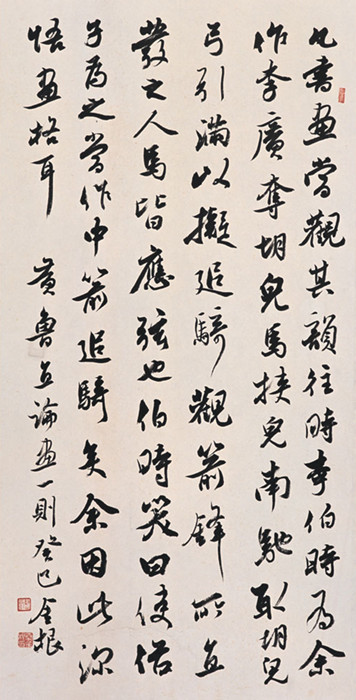 凡書畫當觀其韻往時李伯時為余
作李廣奪胡兒馬挾兒南馳取胡兒
弓引滿以擬追騎觀箭鋒所直
發之人馬皆應弦也伯時笑曰使俗
子為之當作中箭追騎矣余因此深
悟畫格耳 黃魯直論畫一則癸巳金根